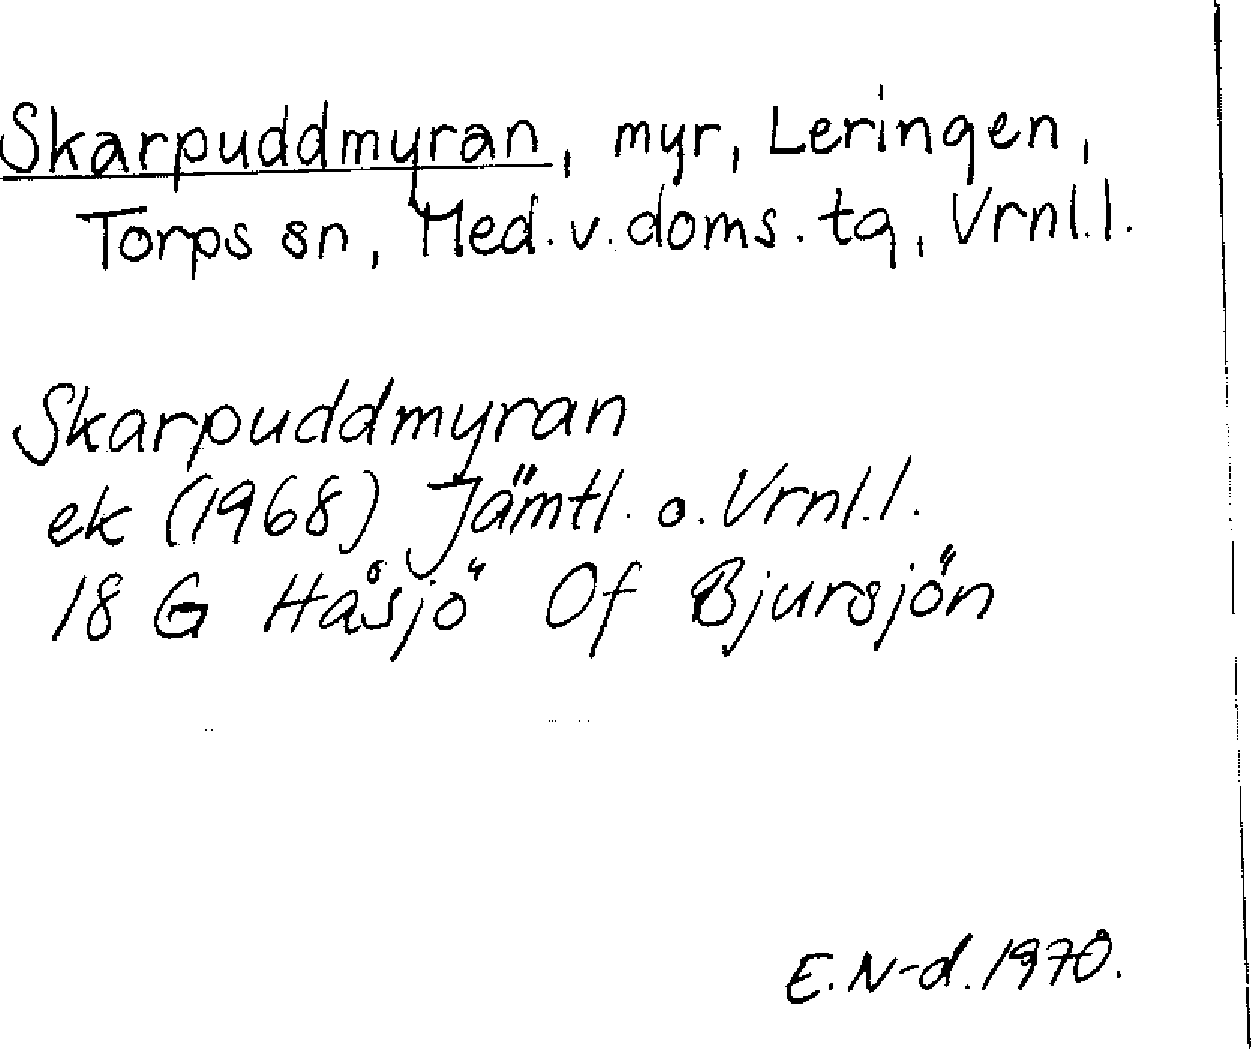 Skarpuddmyran, myr, Leringen,
Torps sn, Med. v. doms. tg, Vrnl.l.
Skarpuddmyran
ek (1968) Jämtl. o. Vrnl.l.
18 G Håsjö Of Bjursjön
E. N-d. 1970.